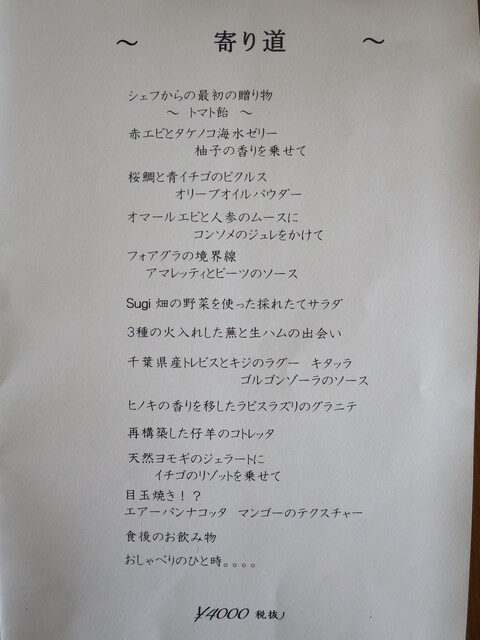 ～ 寄り道 ～
シェフからの最初の贈り物
～ トマト飴 ～
赤エビとタケノコ海水ゼリー
柚子の香りを乗せて
桜鯛と青イチゴのピクルス
オリーブオイルパウダー
オマールエビと人参のムースに
コンソメのジュレをかけて
フォアグラの境界線
アマレッティとビーツのソース
Sugi 畑の野菜を使った採れたてサラダ
3種の火入れした蕪と生ハムの出会い
千葉県産トレビスとキジのラグー キタッラ
ゴルゴンゾーラのソース
ヒノキの香りを移したラピスラズリのグラニテ
再構築した仔羊のコトレッタ
天然ヨモギのジェラートに
イチゴのリゾットを乗せて
目玉焼き！？
エアーパンナコッタ マンゴーのテクスチャー
食後のお飲み物
おしゃべりのひと時。。。。
¥4000 税抜